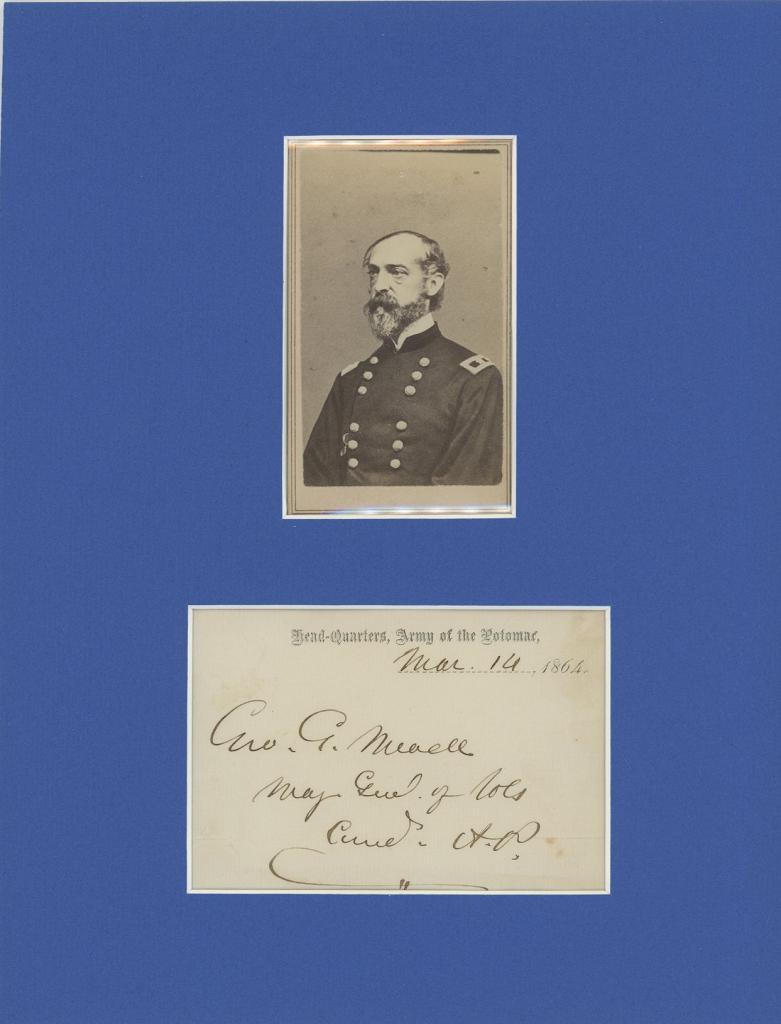 Head-Quarters, Army of the Potomac,
Mar. 14, 1864.
Geo. G. Meade
Maj Genl. of Vols
Comd. A.P.